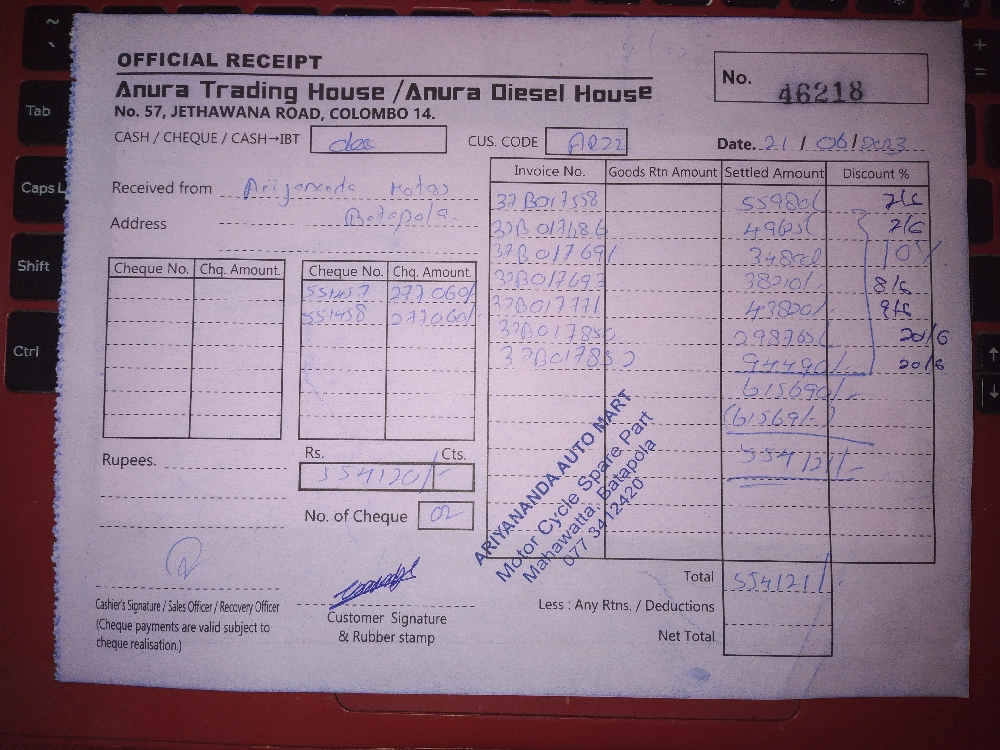 OFFICIAL RECEIPT
Anura Trading House /Anura Diesel House
No. 57, JETHAWANA ROAD, COLOMBO 14.
No. 46218
CASH / CHEQUE / CASH→IBT
CUS. CODE AR22
Date. 21 / 06/2023
Received from Ariyananda Motors
Address Batapola
Invoice No. Goods Rtn Amount Settled Amount Discount %
37B017558 55980/
37B017486
37B017691 10%
37B017693 38210/-
37B017771 43820/-
37B017850 298765/
94490/-
615690/-
(61569/-)
554121/-
Cheque No. Chq. Amount.
Cheque No. Chq. Amount.
551457 277060/-
551458 277060/-
Rupees.
Rs. Cts.
554120/-
No. of Cheque 02
ARIYANANDA AUTO MART
Motor Cycle Spare Part
Mahawatta, Batapola
077 3412420
Total 554121/-
Less : Any Rtns. / Deductions
Net Total
Cashier's Signature / Sales Officer / Recovery Officer
(Cheque payments are valid subject to
cheque realisation.)
Customer Signature
& Rubber stamp
Tab
Caps L
Shift
Ctrl